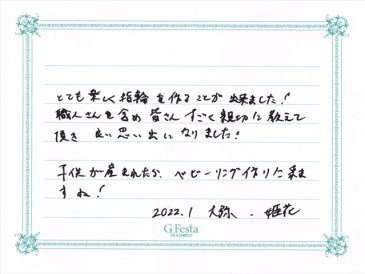 とても楽しく指輪を作ることが出来ました!
職人さんを含め皆さんすごく親切に教えて
頂き 良い思い出になりました!
子供が産まれたら、ベビーリング作りに来ま
すね!
2022.1 大弥 . 姫花
G.Festa